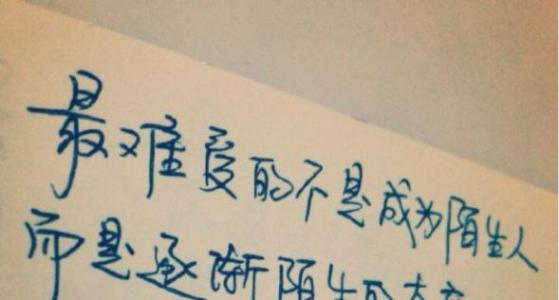 最难受的不是成为陌生人
而是逐渐陌生的